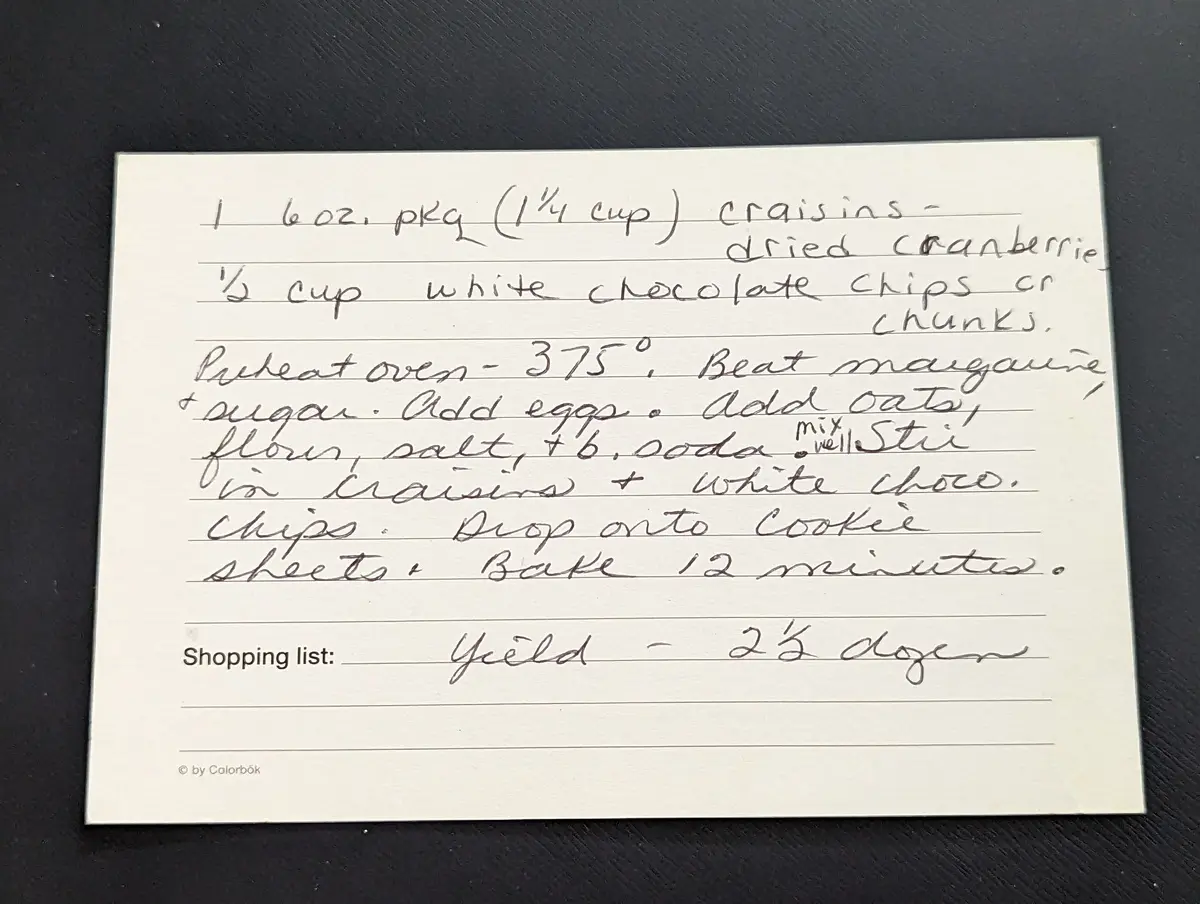 1 6 oz. pkg (1 1/4 cup) craisins -
dried cranberries
1/2 cup white chocolate chips or
chunks.
Preheat oven - 375°. Beat margarine,
+ sugar. Add eggs. Add oats,
flour, salt, + b. soda. mix well Stir
in craisins + white choco.
chips. Drop onto cookie
sheets. Bake 12 minutes.
Shopping list: Yield - 2 1/2 dozen
© by Colorbök